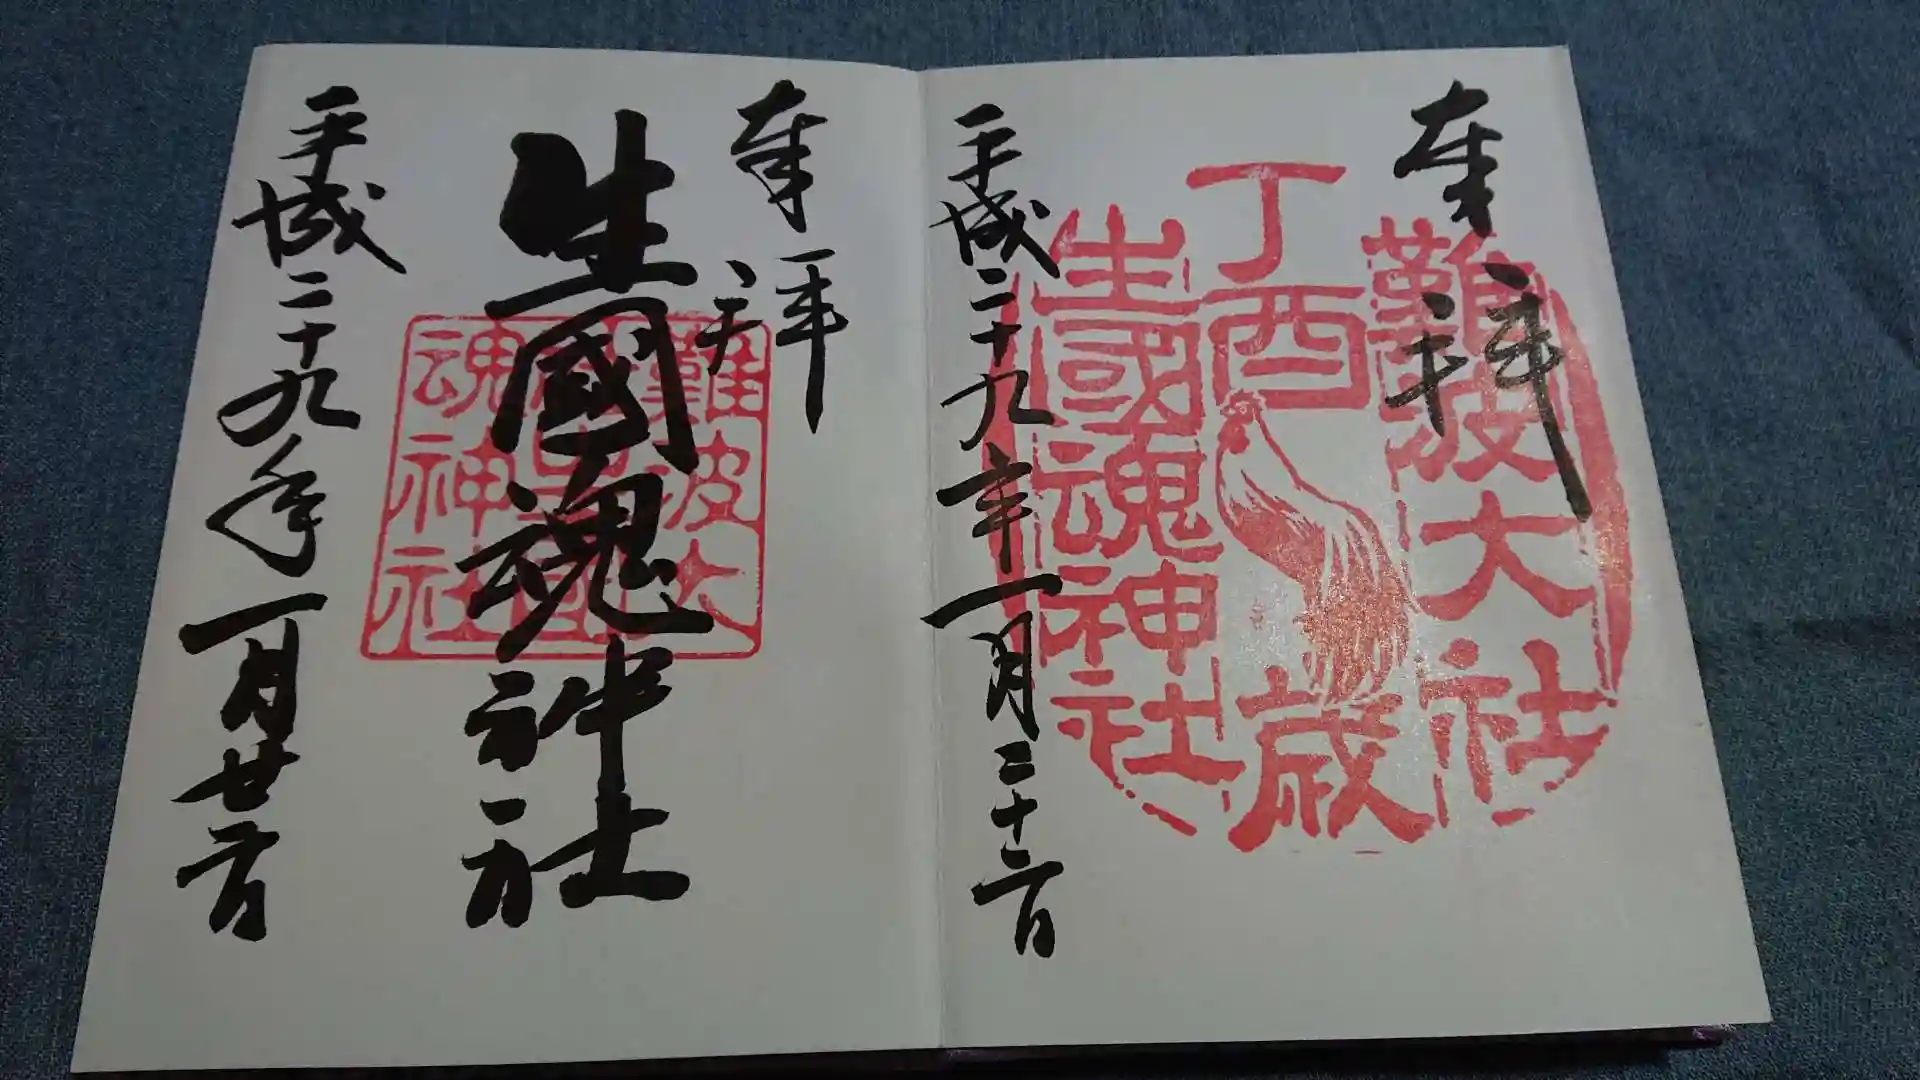 奉拝
難波大社
丁酉
歳
生國魂神社
平成二十九年一月二十二日
奉拝
難波大
社生國
魂神社
生國魂神社
平成二十九年一月廿二日